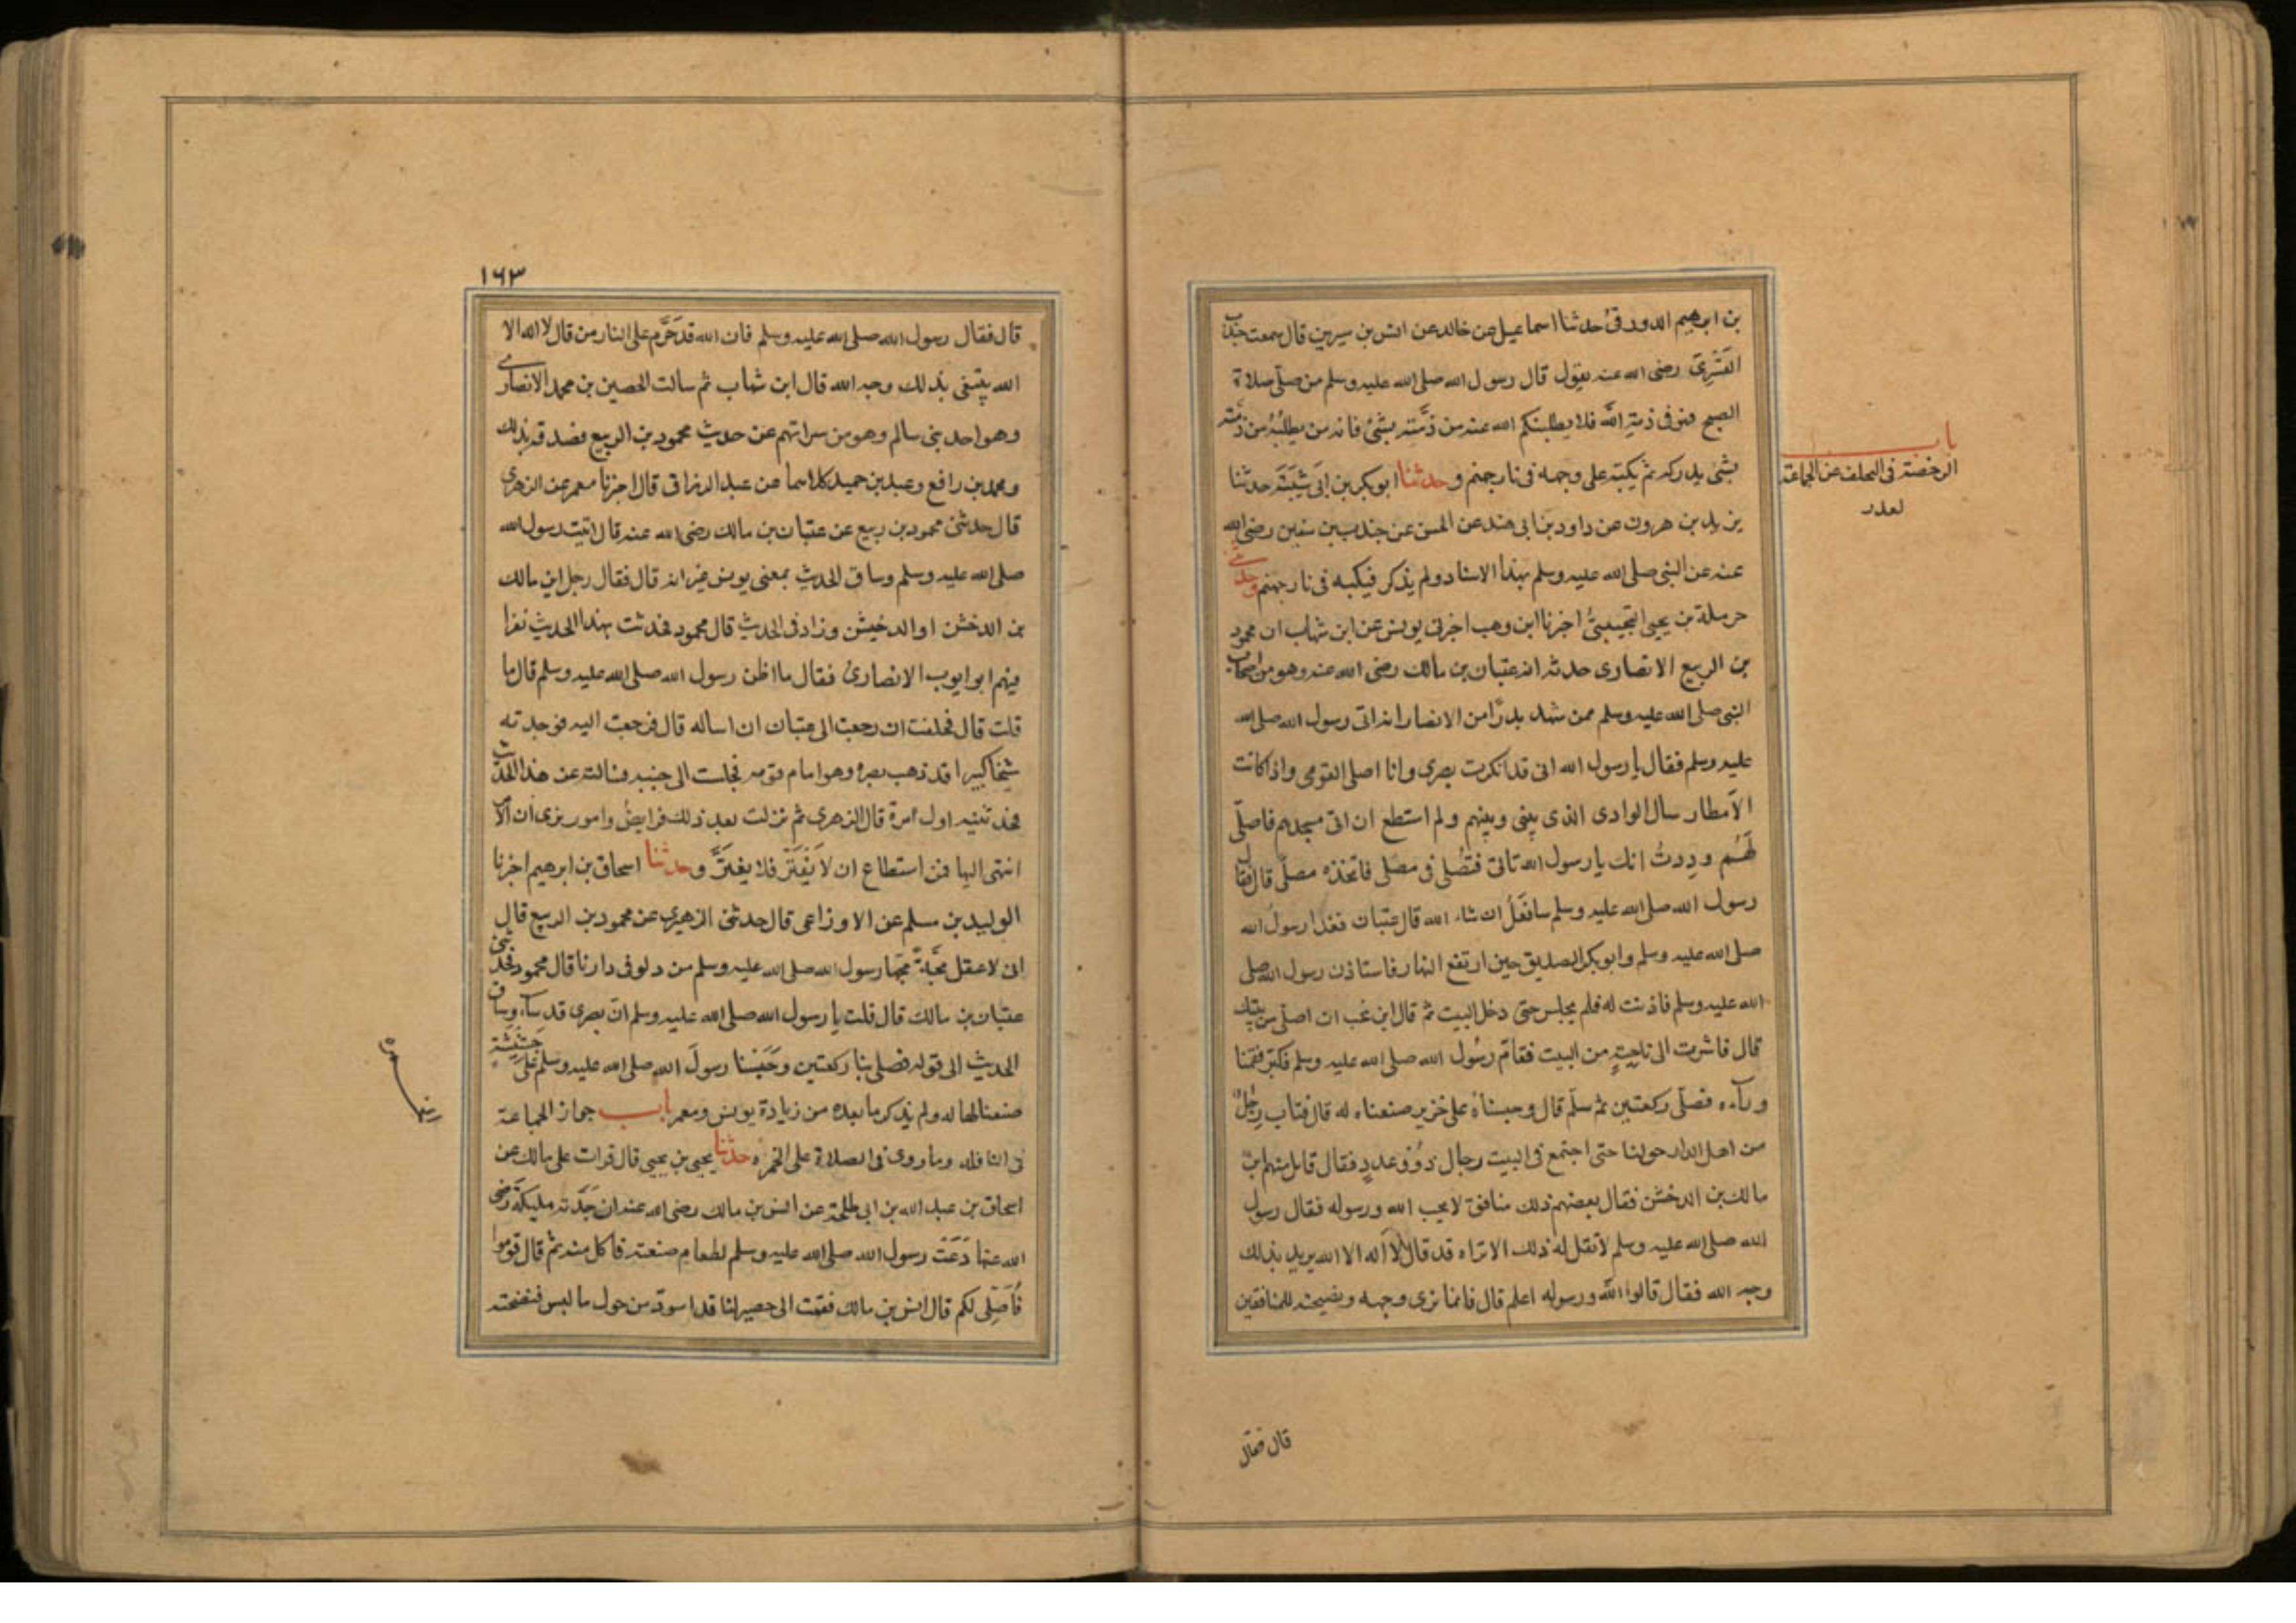 بن ابرهيم الدورقى حدثنا اسماعيل عن خالد عن انس بن سيرين قال سمعت جندب
القَسْرِىَّ رضى الله عنه يقول قال رسول الله صلى الله عليه وسلم من صلّى صلاة
الصبح فهو فى ذمةِ اللّه فلا يطلبنكم الله عنه من ذمَّته بشئ فانه من يطلُبْهُ من ذمّته
بشئ يدركه ثم يكبّه على وجهه فى نار جهنم وحدثنا ابو بكر بن ابى شَيْبَةَ حدثنا
يزيد بن هرون عن داود بن ابى هند عن الحسن عن جندب بن سفين رضى الله
عنه عن النبى صلى الله عليه وسلم بهذا الاسناد ولم يذكر فيكبه فى نار جهنم وحدثنى
حرملة بن يحيى التجيبىُّ اخبرنا ابن وهب اخبرنى يونس عن ابن شهاب ان محمود
بن الربيع الانصارى حدثه ان عتبان بن مالك رضى الله عنه وهو من اصحاب
النبى صلى الله عليه وسلم ممن شهد بدرًا من الانصار انه اتى رسول الله صلى الله
عليه وسلم فقال يا رسول الله انى قد انكرت بصرى وانا اصلى لقومى واذا كانت
الاَمطار سال الوادى الذى بينى وبينهم ولم استطع ان اتى مسجدهم فاصلّى
لَهُم وددتُ انك يا رسول الله تاتى فتُصَلى فى مصلى فاتخذه مصلّى قال فقال
رسول الله صلى الله عليه وسلم سافعَلُ ان شاء الله قال عتبان فغدا رسولُ الله
صلى الله عليه وسلم وابو بكر الصديق حين ارتفع النهار فاستاذن رسول الله صلى
الله عليه وسلم فاذنت له فلم يجلس حتى دخل البيت ثم قال اين تحب ان اصلّى من بيتك
قال فاشرت الى ناحيةٍ من البيت فقامَ رسُول الله صلى الله عليه وسلم فكبّر فقمنا
ورآءه فصلّى ركعتين ثم سلّم قال وحبسناهُ على خزير صنعناه له قال فثاب رجُلٌ
من اهل الدار حولنا حتى اجتمع فى البيت رجال ذوُو عددٍ فقال قايل منهم اين
مالك بن الدخشن فقال بعضهم ذلك منافق لا يحب الله ورسوله فقال رسول
الله صلى الله عليه وسلم لا تقل له ذلك الا تراه قد قال لاَ اله الا الله يريد بذلك
وجه الله فقال قالوا اللّه ورسوله اعلم قال فانما نرى وجهه ونصيحته للمنافقين
قال فقال
باب
الرخصة فى التخلف عن الجماعة
لعذر
١٦٣
قال فقال رسول الله صلى الله عليه وسلم فان الله قد حَرَّم على النار من قال لا اله الا
الله يبتغى بذلك وجه الله قال ابن شهاب ثم سالت الحصين بن محمد الانصارى
وهو احد بنى سالم وهو من سراتهم عن حديث محمود بن الربيع فصدقه بذلك
ومحمد بن رافع وعبد بن حميد كلاهما عن عبد الرزاق قال اخبرنا معمر عن الزهرى
قال حدثنى محمود بن ربيع عن عتبان بن مالك رضى الله عنه قال اتيت رسول الله
صلى الله عليه وسلم وساق الحديث بمعنى يونس غير انه قال فقال رجل اين مالك
بن الدخشن او الدخيشن وزاد فى الحديث قال محمود فحدثت بهذا الحديث نفرا
فيهم ابو ايوب الانصارىُ فقال ما اظن رسول الله صلى الله عليه وسلم قال ما
قلت قال فحلفت ان رجعت الى عتبان ان اساله قال فرجعت اليه فوجدته
شيخا كبيرا قد ذهب بصره وهو امام قومه فجلست الى جنبه فسالته عن هذا الحديث
فحدثنيه اول مرة قال الزهرى ثم نزلت بعد ذلك فرايضُ وامور نرى ان الامر
انتهى اليها فمن استطاع ان لا يَغْتَرّ فلا يغترَّ وحدثنا اسحاق بن ابرهيم اخبرنا
الوليد بن مسلم عن الاوزاعى قال حدثنى الزهرى عن محمود بن الربيع قال
انى لاعقل مَجَّةً مجّها رسول الله صلى الله عليه وسلم من دلو فى دارنا قال محمود فحدثنى
عتبان بن مالك قال قلت يا رسول الله صلى الله عليه وسلم انّ بصرى قد سآء وساق
الحديث الى قوله فصلى بنا ركعتين وحَبَسْنا رسولَ الله صلى الله عليه وسلم على جَشِيشَةٍ
صنعناها له ولم يذكر ما بعده من زيادة يونس ومعمر باب جواز الجماعة
فى النافلة وما روى فى الصلاة على الخمره حدثنا يحيى بن يحيى قال قرات على مالك عن
اسحاق بن عبد الله بن ابى طلحة عن انس بن مالك رضى الله عنه ان جَدَّته مليكة رضى
الله عنها دَعَتْ رسول الله صلى الله عليه وسلم لطعامٍ صنعته فاكل منه ثم قال قوموا
فاُصَلّى لكم قال انس بن مالك فقمت الى حصير لنا قد اسودّ من حول ما لبس فنضحته